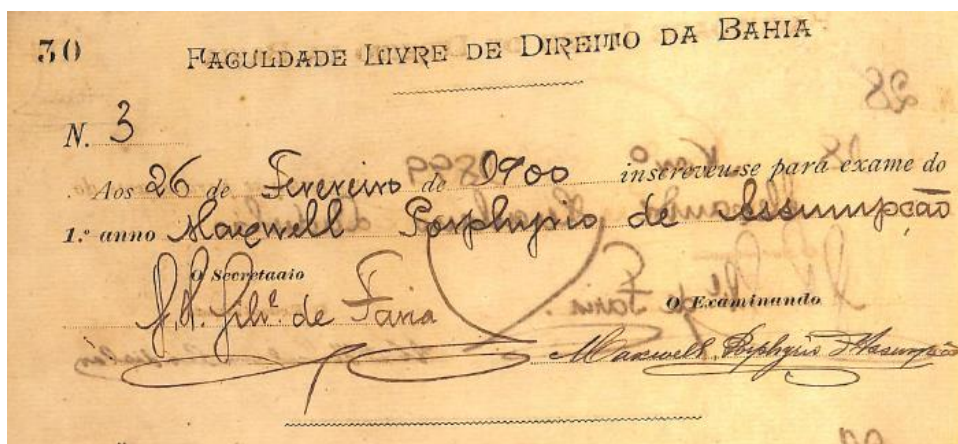 30
FACULDADE LIVRE DE DIREITO DA BAHIA
N. 3
Aos 26 de Fevereiro de 1900 inscreveu-se para exame do
1.º anno Maxwell Porphyrio de Assumpção
O Secretaaio
de Faria
O Examinando
Maxwell Porphyrio d'Assumpção